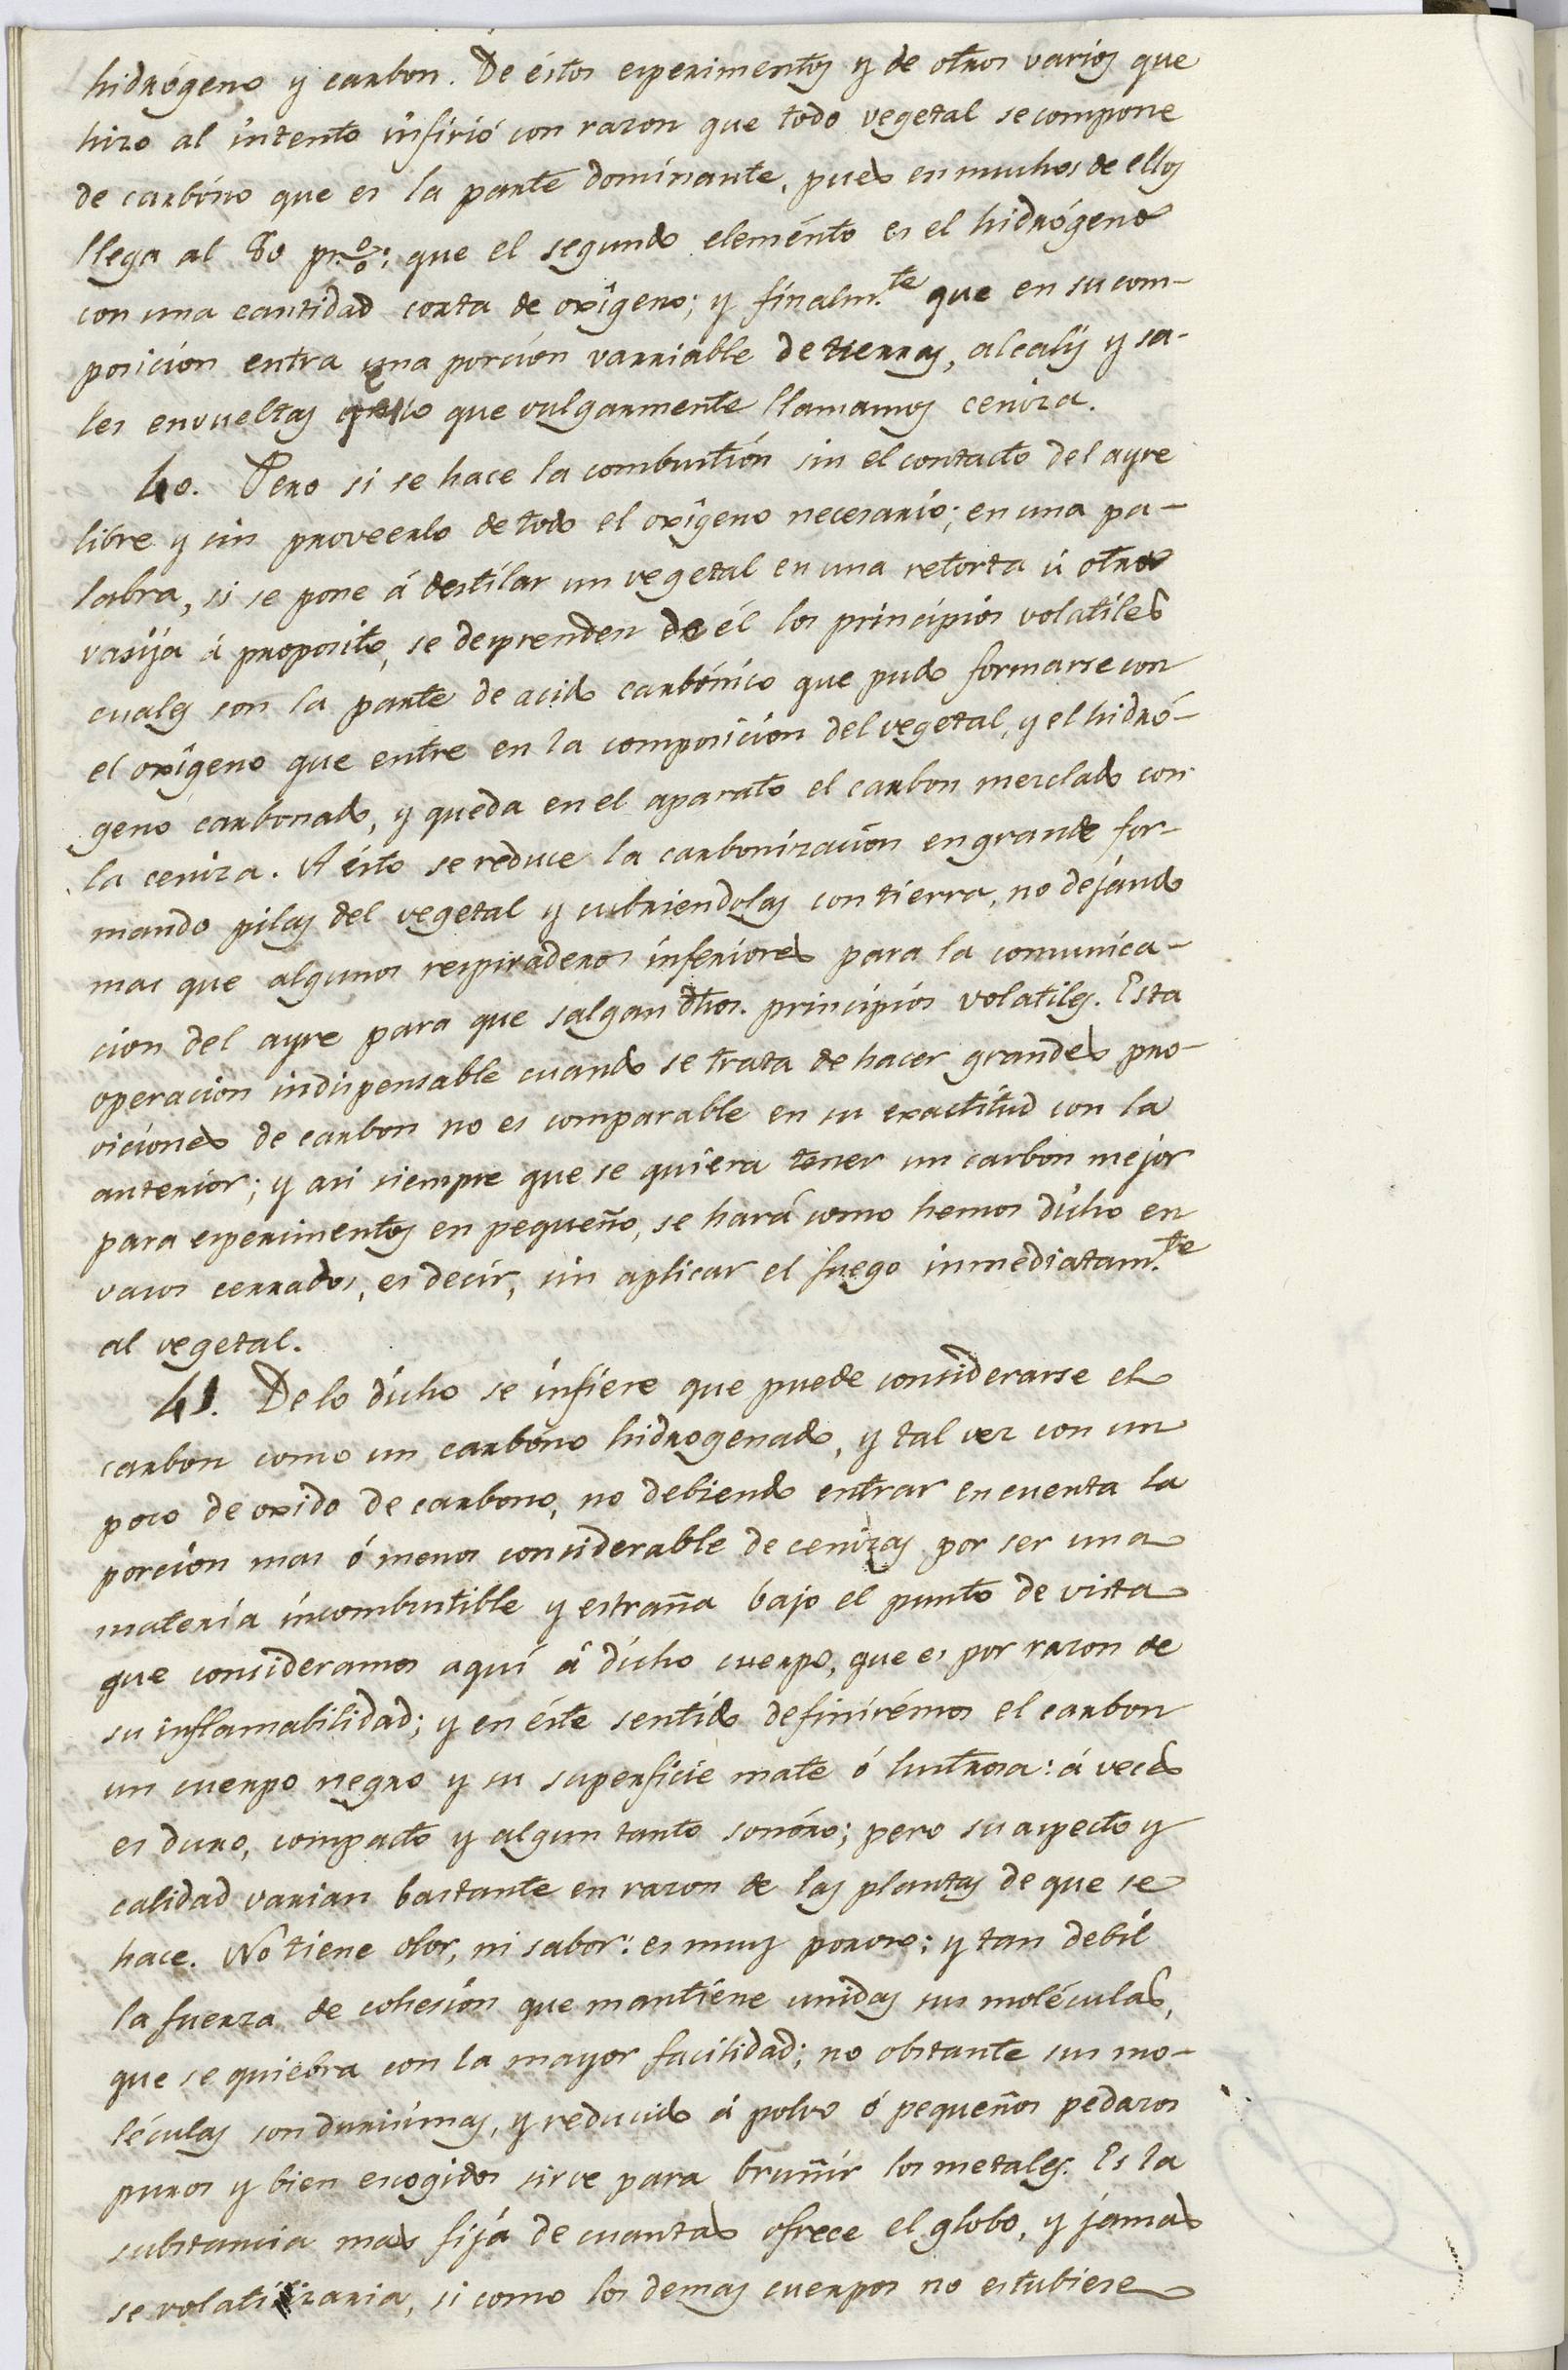 hidrógeno y carbon. De éstos esperimentos y de otros varios que
hizo al intento infirió con razon que todo vegetal se compone
de carbóno que es la parte dominante, pues en muchos de ellos
llega al 80 p.r %; que el segundo elemento es el hidrógeno
con una cantidad corta de oxîgeno; y finalm.te que en su com-
posicion entra una porcion varriable de tierras, alcalis y sa-
les envueltas en lo que vulgarmente llamamos ceniza.
40. Pero si se hace la combustión sin el contacto del ayre
libre y sin proveerlo de todo el oxîgeno necesario; en una pa-
labra, si se pone á destilar un vegetal en una retorta ú otra
vasija á proposito, se desprenden de él los principios volatiles
cuales son la parte de acido carbónico que pudo formarse con
el oxîgeno que entre en la composicion del vegetal, y el hidró-
geno carbonado, y queda en el aparato el carbon mezclado con
la ceniza. A ésto se reduce la carbonizacion en grande for-
mando pilas del vegetal y cubriendolas con tierra, no dejando
mas que algunos respiraderos inferiores para la comunica-
cion del ayre para que salgan dhos. principios volatiles. Esta
operacion indispensable cuando se trata de hacer grandes pro-
viciones de carbon no es comparable en su exactitud con la
anterior; y asi siempre que se quiera tener un carbon mejor
para esperimentos en pequeño, se hará como hemos dicho en
vasos cerrados, es decir, sin aplicar el fuego inmediatam.te
al vegetal.
41. De lo dicho se infiere que puede considerarse el
carbon como un carbóno hidrogenado, y tal vez con un
poco de oxido de carbono, no debiendo entrar en cuenta la
porcion mas ó menos considerable de cenizas por ser una
materia incombustible y estraña bajo el punto de vista
que consideramos aquí á dicho cuerpo, que es por razon de
su inflamabilidad; y en éste sentido definirémos el carbon
un cuerpo negro y su superficie mate ó lustrosa: á veces
es duro, compacto y algun tanto sonóro; pero su aspecto y
calidad varian bastante en razon de las plantas de que se
hace. No tiene olor, ni sabor: es muy poroso; y tan debil
la fuerza de cohesion que mantiene unidas sus moléculas,
que se quiebra con la mayor facilidad; no obstante sus mo-
léculas son durisimas, y reducido á polvo ó pequeños pedazos
puros y bien escogidos sirve para bruñir los metales. Es la
substancia mas fija de cuantas ofrece el globo, y jamas
se volatilizaria, si como los demas cuerpos no estubiese